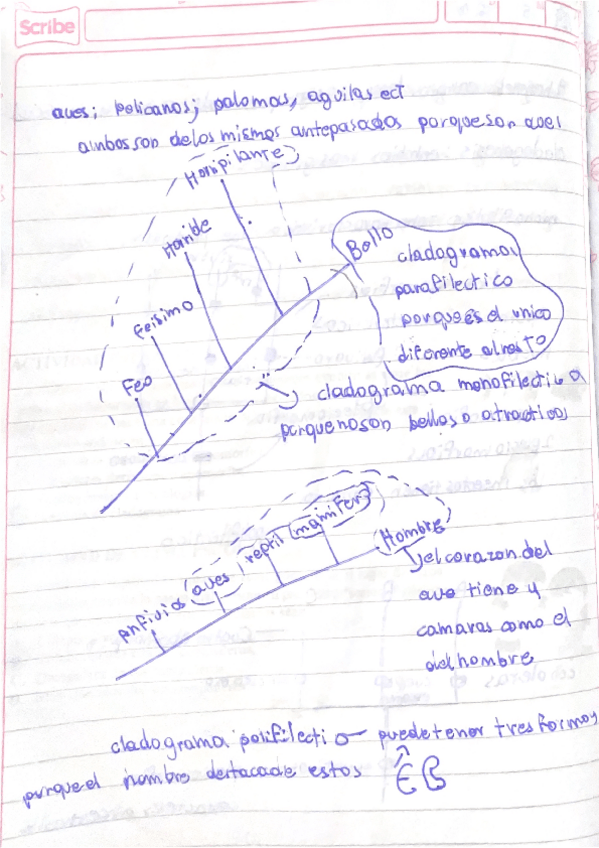 Scribe
aves; pelicanos; palomas, aguilas ect
ambos son de los mismos antepasados porque son aves
Horripilante
Horrible
Feisimo
Feo
Bello
cladograma
parafilectico
porque es el unico
diferente al resto
cladograma monofilectico
porque no son bellos o atractivos
anfivios
aves
reptil
mamifero
Hombre
el corazon del
ave tiene 4
camaras como el
del hombre
cladograma polifilectico puede tener tres formas
porque el hombre destaca de estos